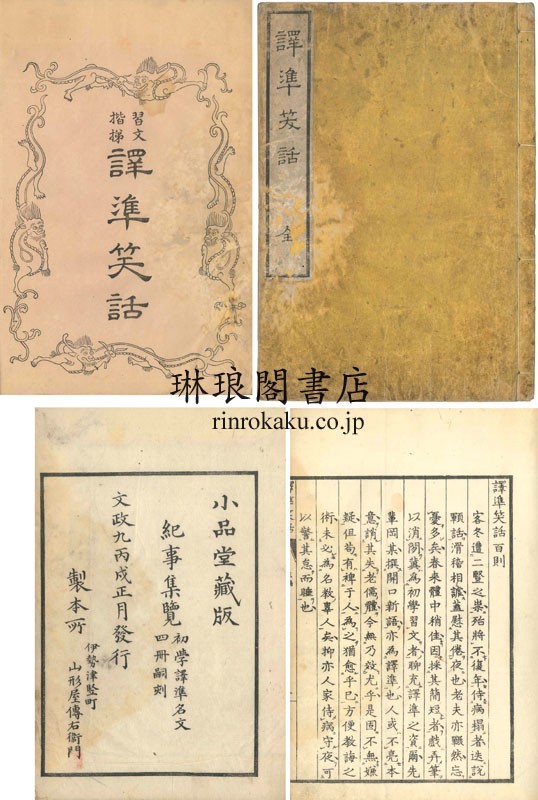 習文
楷梯
譯準笑話
譯準笑話
全
琳琅閣書店
rinrokaku.co.jp
小品堂藏版
紀事集覽
初學譯準名文
四冊嗣刻
文政九丙戌正月發行
製本所
伊勢津竪町
山形屋傳右衞門
譯準笑話百則
客冬遭二豎之祟殆將不復年侍病榻者迭說
話滑稽相誂蓋慰其倦夜也老夫亦然忘
憂多矣春來體中稍佳因採其簡短者戲弄筆
以消閑冀為初學習文者聊充譯準之資爾先
輩岡某撰開口新語亦為譯準也人或不亮本
意誚其失老儒體今無乃效尤乎是固不無嫌
疑但苟有裨于人為之猶愈乎已方便教誨之
術未必為名教人矣抑亦人家侍病守夜可
以警其怠而睡也